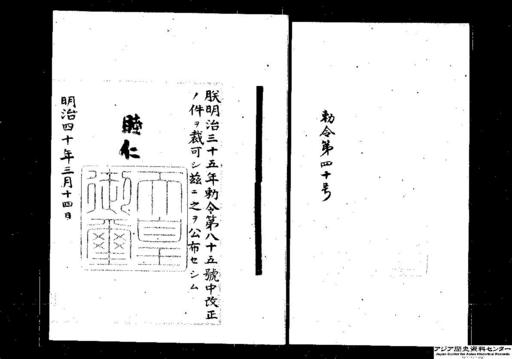 勅令第四十号
朕明治三十五年勅令第八十五號中改正
ノ件ヲ裁可シ茲ニ之ヲ公布セシム
睦仁
天皇
御璽
明治四十年三月十四日
アジア歴史資料センター
Japan Center for Asian Historical Records